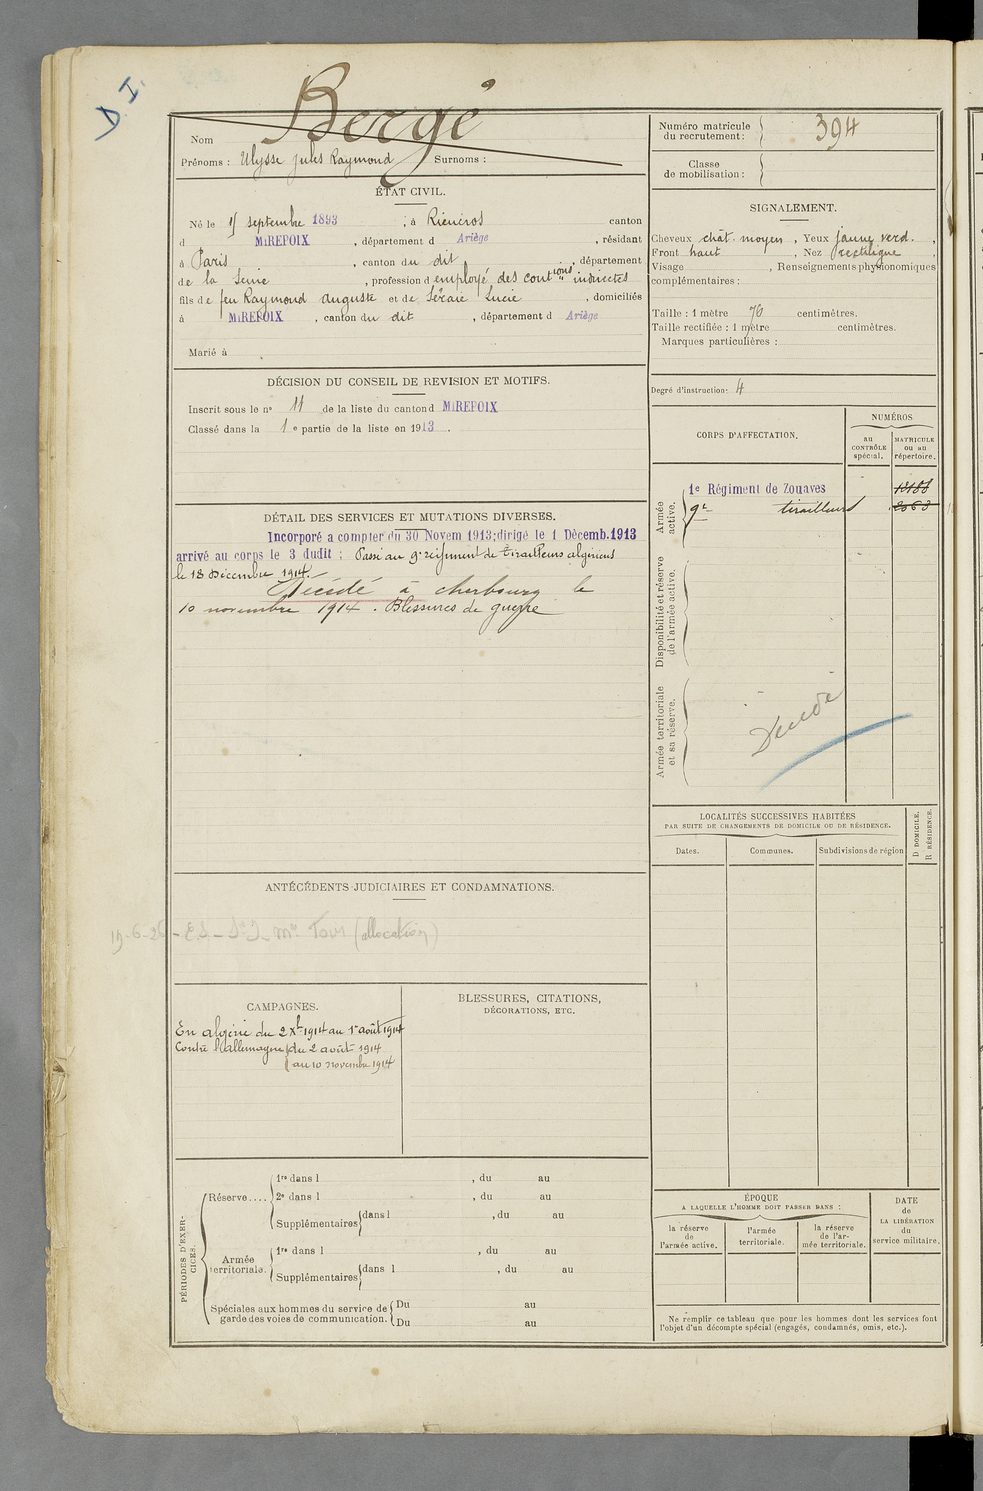 D. I.
Nom Bergé
Prénoms : Ulysse Jules Raymond Surnoms :
ÉTAT CIVIL.
Né le septembre 1893 , à Rieucros canton
d MIREPOIX , département d Ariège , résidant
à Paris , canton du dit , département
de la Seine , profession d employé des contions indirectes
fils de feu Raymond Auguste et de Lucie , domiciliés
à MIREPOIX , canton du dit , département d Ariège
Marié à
DÉCISION DU CONSEIL DE REVISION ET MOTIFS.
Inscrit sous le no 11 de la liste du canton d MIREPOIX
Classé dans la 1 e partie de la liste en 1913 .
DÉTAIL DES SERVICES ET MUTATIONS DIVERSES.
Incorporé a compter du 30 Novem 1913;dirigé le 1 Dècemb.1913
arrivé au corps le 3 dudit ; Passé au 9e régiment de tirailleurs algériens
le 18 Décembre 1914.
Décédé à Cherbourg le
10 novembre 1914 . Blessures de guerre
ANTÉCÉDENTS JUDICIAIRES ET CONDAMNATIONS.
(allocation)
CAMPAGNES.
En Algérie du 2 Xbre 1914 au 1er août 1914
Contre l'allemagne du 2 août 1914
au 10 novembre 1914
BLESSURES, CITATIONS,
DÉCORATIONS, ETC.
PÉRIODES D'EXERCICES.
Réserve....
1re dans l , du au
2e dans l , du au
Supplémentaires dans l , du au
Armée territoriale.
1re dans l , du au
Supplémentaires dans l , du au
Spéciales aux hommes du service de garde des voies de communication.
Du au
Du au
Numéro matricule du recrutement : 394
Classe de mobilisation :
SIGNALEMENT.
Cheveux chât. moyen , Yeux jaune verd. ,
Front haut , Nez rectiligne ,
Visage , Renseignements physionomiques
complémentaires :
Taille : 1 mètre 70 centimètres.
Taille rectifiée : 1 mètre centimètres.
Marques particulières :
Degré d'instruction: 4
CORPS D'AFFECTATION.
NUMÉROS
au CONTRÔLE spécial.
MATRICULE ou au répertoire.
Armée active.
1e Régiment de Zouaves
9e tirailleurs
Disponibilité et réserve de l'armée active.
Armée territoriale et sa réserve.
Décédé
LOCALITÉS SUCCESSIVES HABITÉES
PAR SUITE DE CHANGEMENTS DE DOMICILE OU DE RÉSIDENCE.
Dates.
Communes.
Subdivisions de région
D DOMICILE.
R RÉSIDENCE.
ÉPOQUE
A LAQUELLE L'HOMME DOIT PASSER DANS :
la réserve de l'armée active.
l'armée territoriale.
la réserve de l'armée territoriale.
DATE de LA LIBÉRATION du service militaire.
Ne remplir ce tableau que pour les hommes dont les services font
l'objet d'un décompte spécial (engagés, condamnés, omis, etc.).